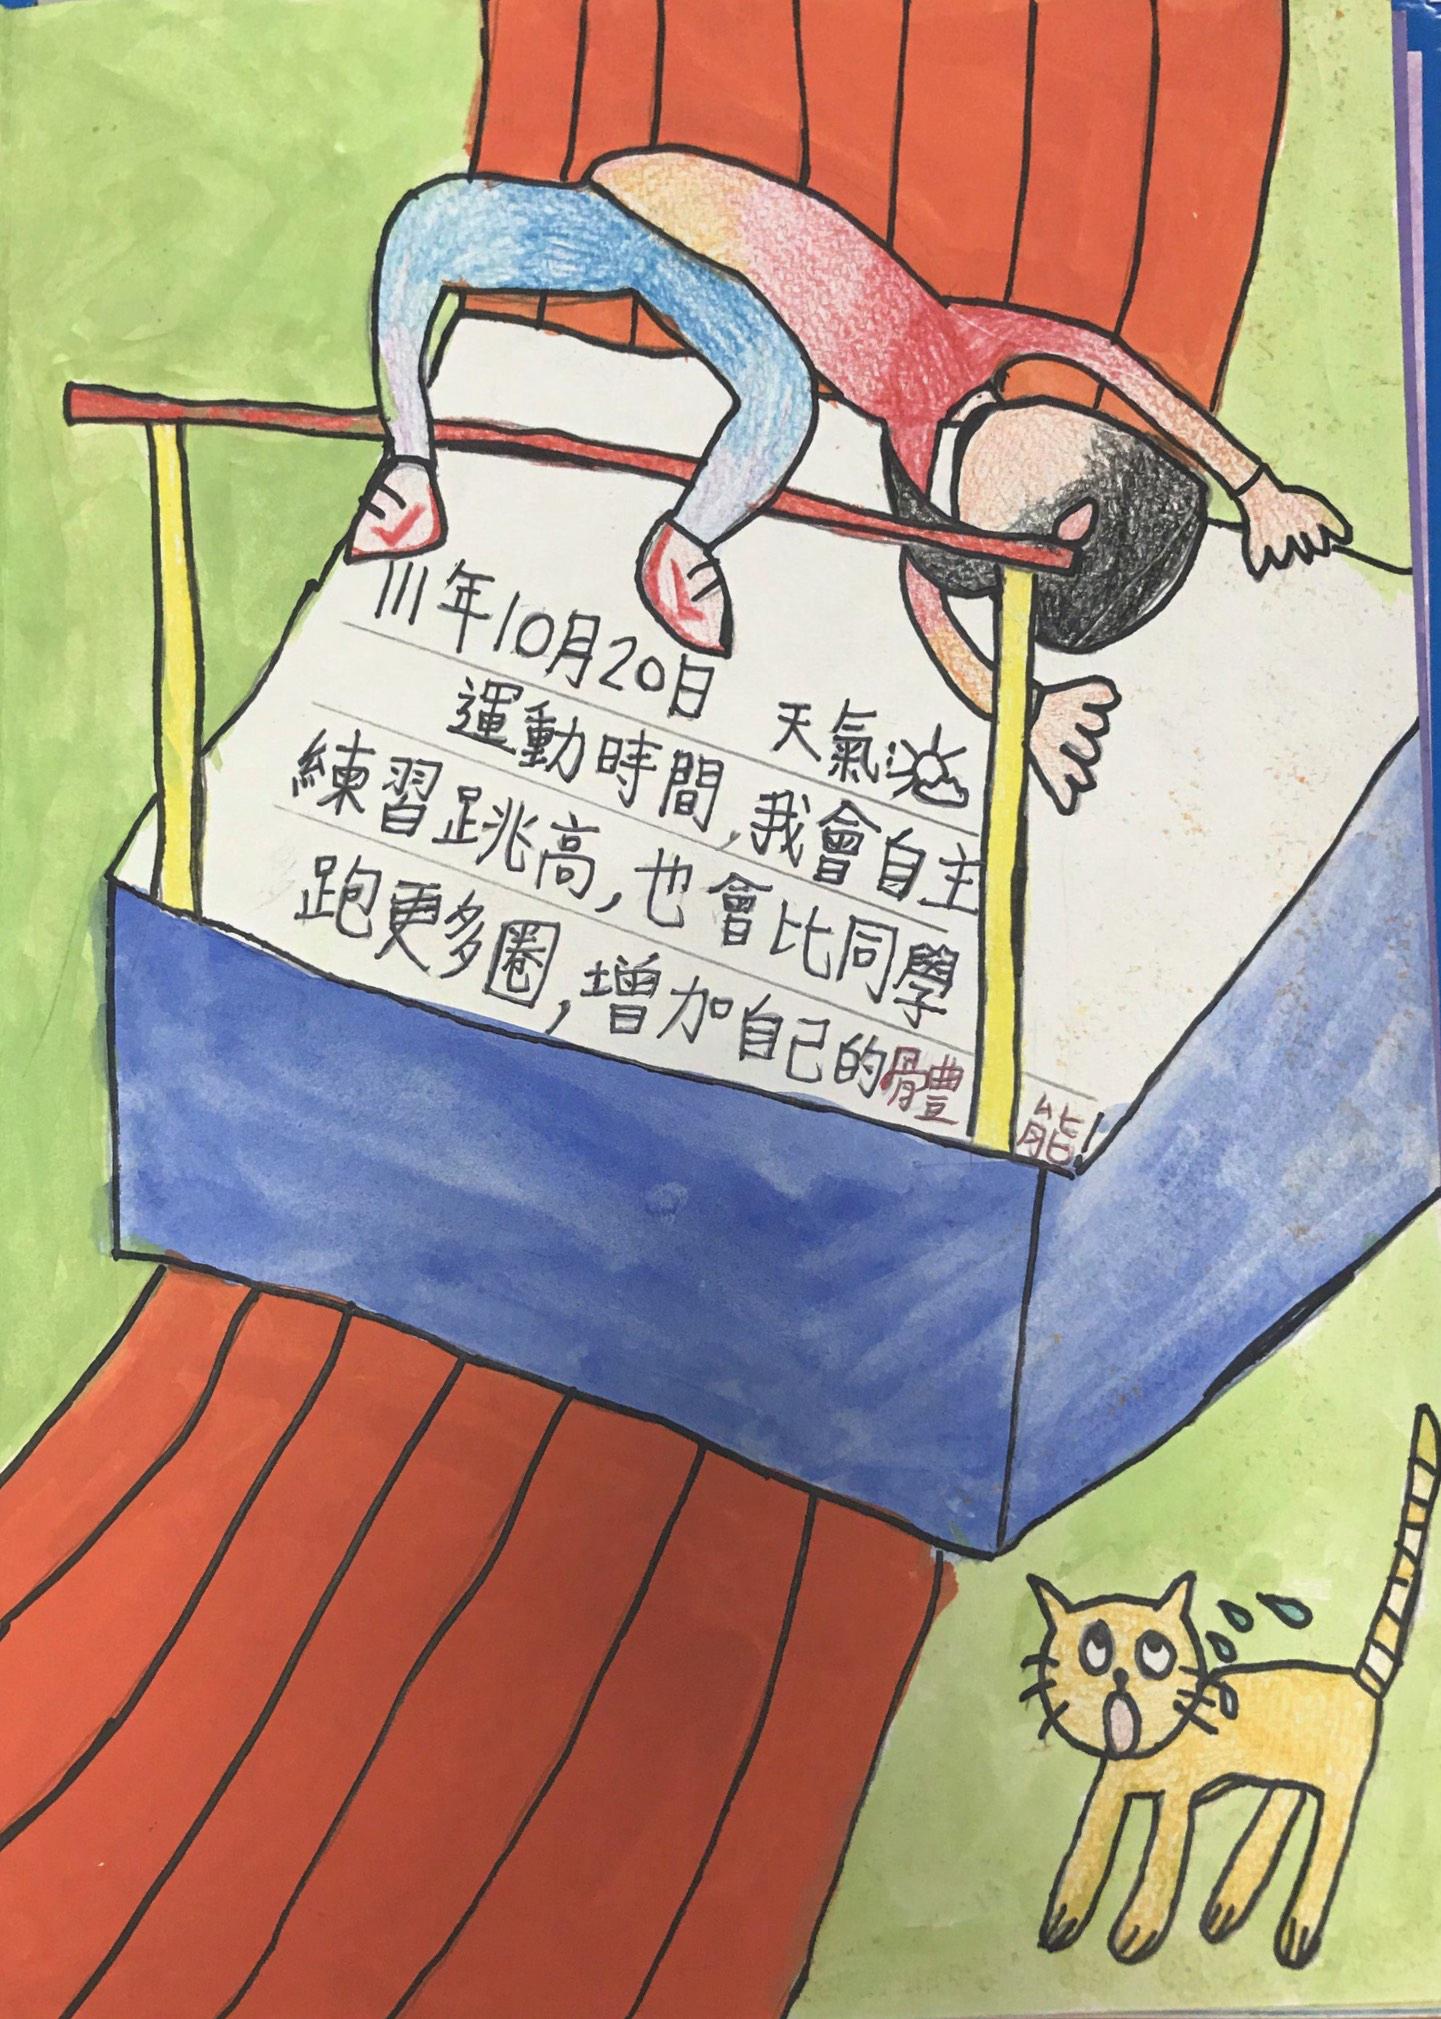 111年10月20日 天氣:
運動時間,我會自主
練習跳高,也會比同學
跑更多圈,增加自己的體能!